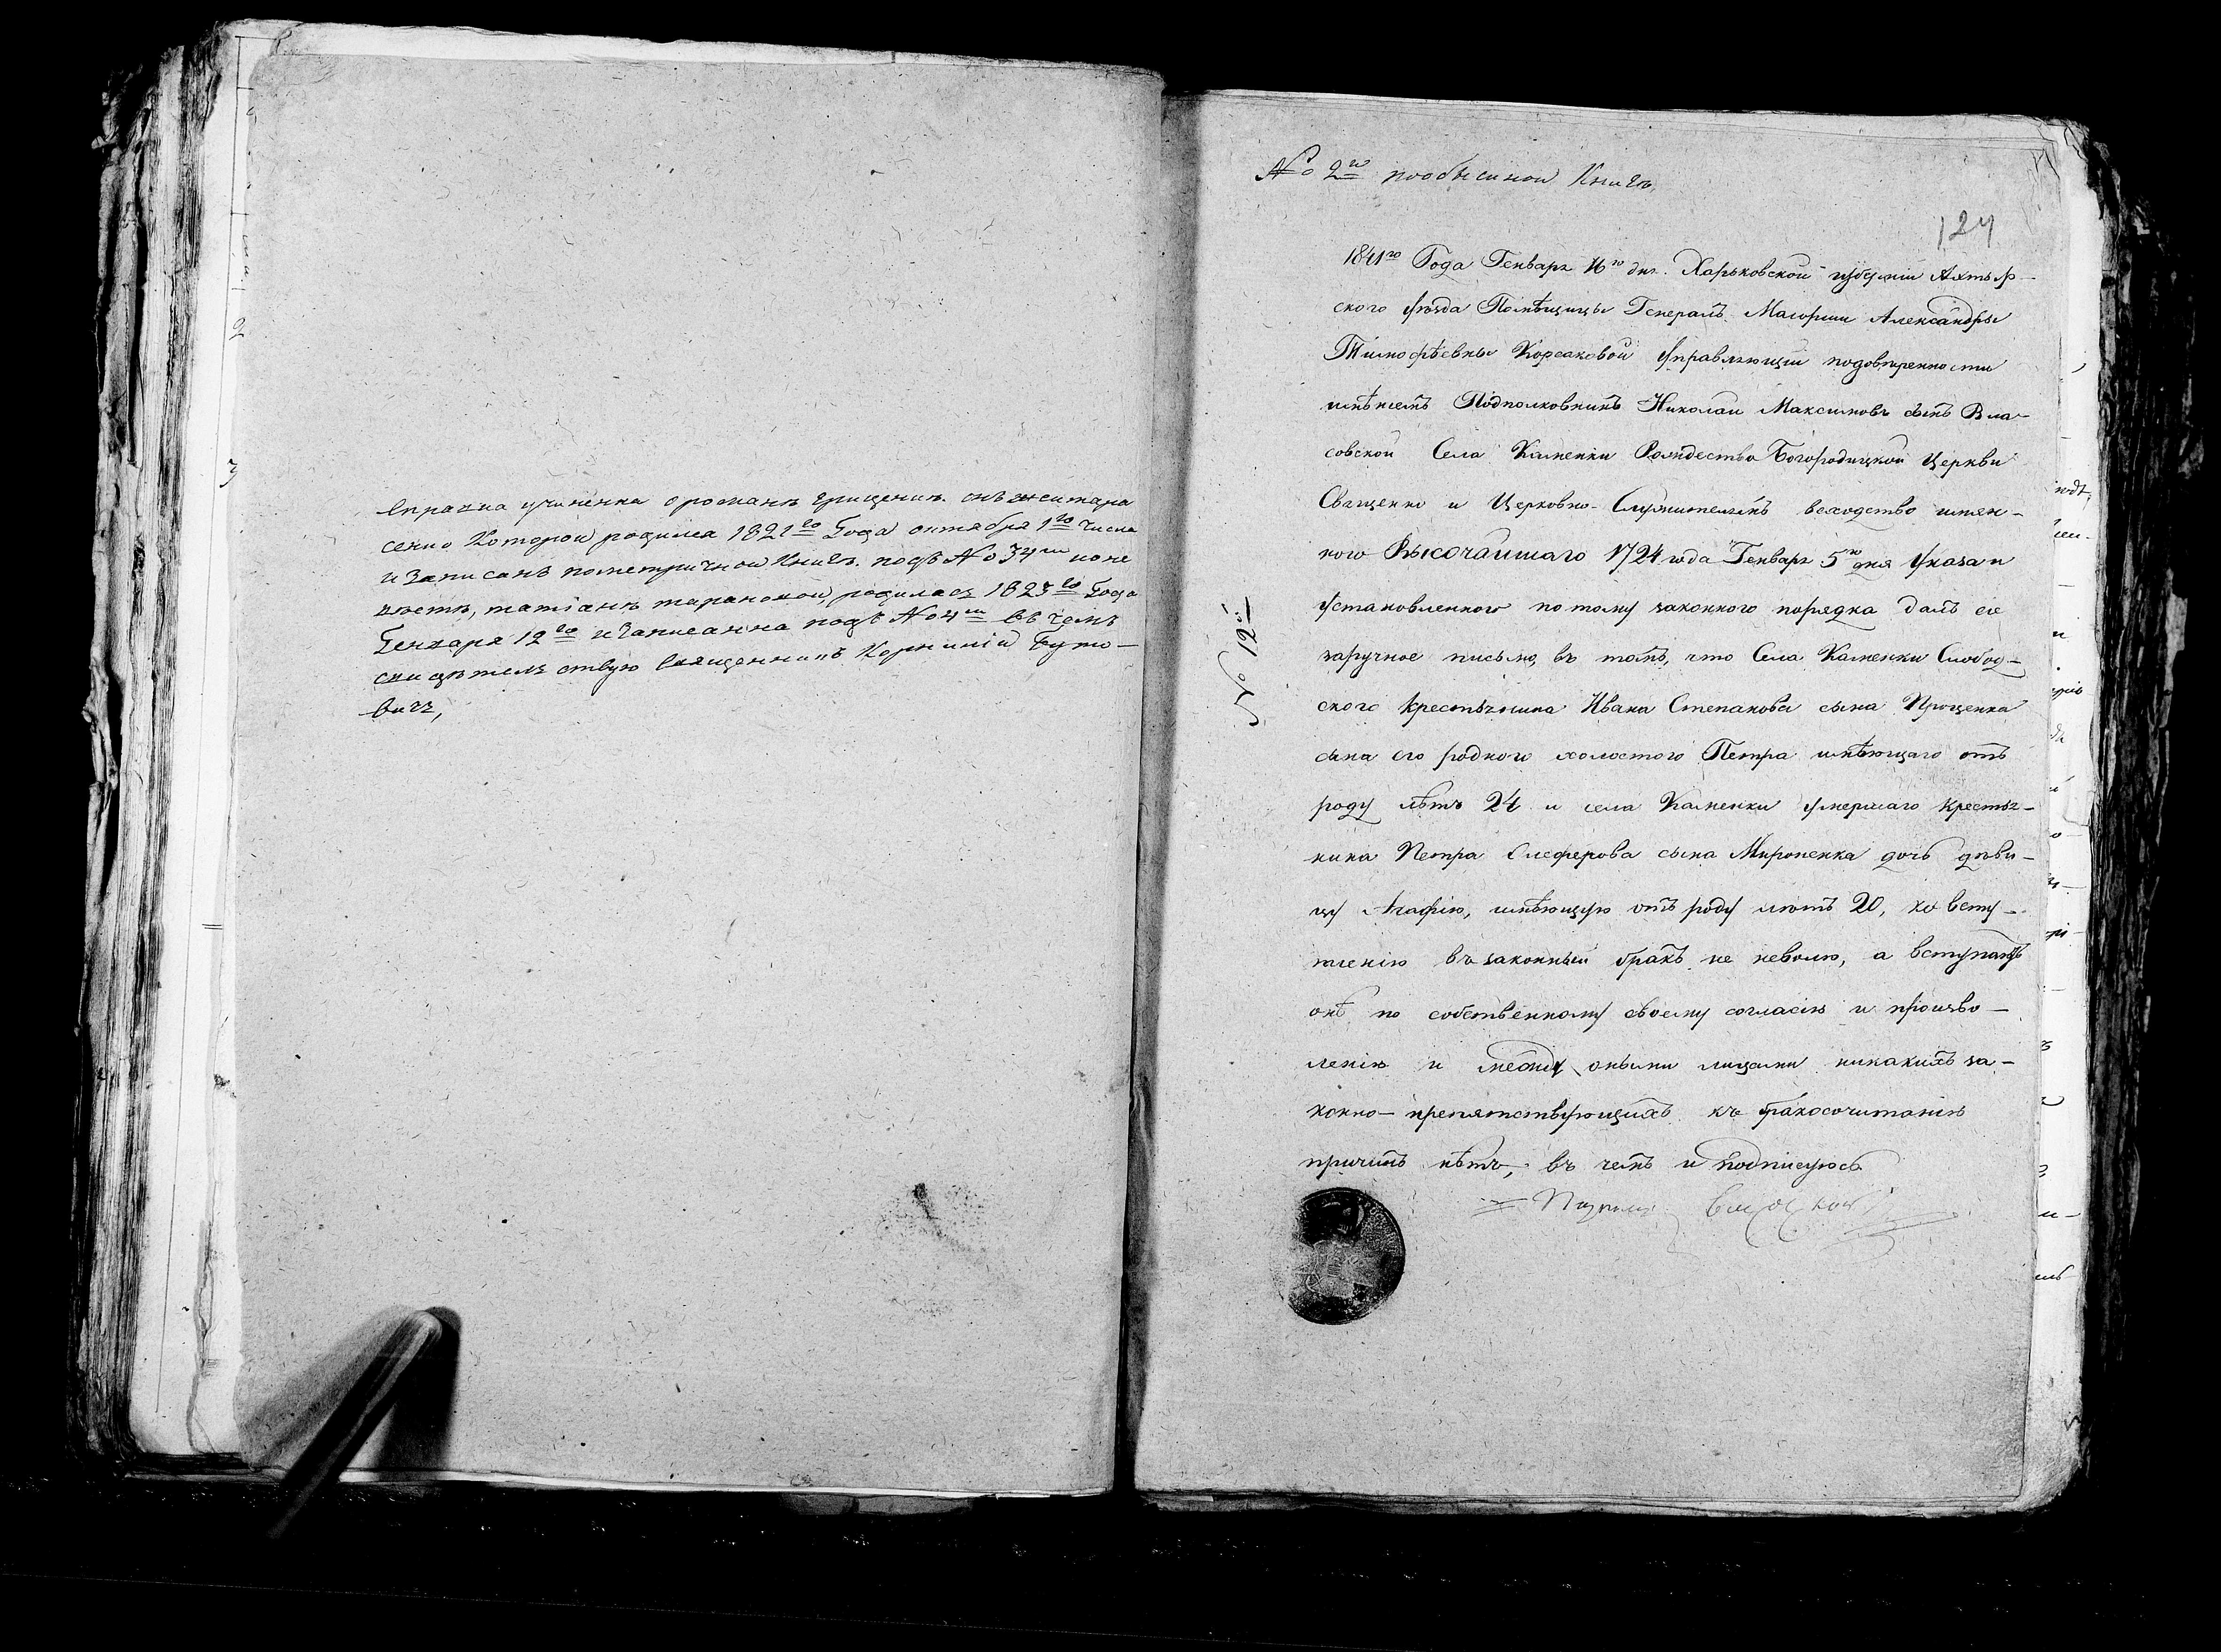 Справка учиненна о романѣ грищенкѣ. снѣ
сенио которой родился 1821го Года октября 1го числа
и записанъ пометричной книгѣ. подъ № 34м но не
вѣстѣ, татіанѣ тарановой, родилась 1823го Года
Генваря 12го и записанна подъ № 4м въ чемъ
свидѣтельствую священникъ Корнилій Буто–
вичъ,
№ 2й пообысной Книгѣ
124
1841го Года Генваря 16го дня. Харьковской губерніи Ахтыр–
ского уѣзда Помѣщицы Генералъ Маіорши Александры
Тимофѣевны Корсаковой Управляющій подовѣренности
имѣнемъ Подполковникъ Николай Максимовъ сынъ Вла–
совской Села Каменки Рождество Богородицкой Церкви
Священно и Церковно-Служителямъ всходство имян–
ного Высочайшаго 1724 года Генваря 5го дня Указа и
установленного потому законного порядка далъ сіе
заручное письмо, въ томъ, что Села Каменки Слобод–
ского крестьянина Ивана Степанова сына Прощенка
сына его родного холостого Петра имѣющаго отъ
роду лѣтъ 24 и села Каменки умершаго крестья–
нина Петра Елеферова сына Мироненка дочь дѣви–
цу Агафію, имѣющую отъ роду лѣтъ 20, ко всту–
пленію въ законный бракъ не неволю, а вступаютъ
онѣ по собственному своему согласію и произво–
ленію и между оными лицами никакихъ за–
конно–препятствующихъ къ бракосочитанію
причинъ нѣтъ, въ чемъ и подписуюсь
№ 12й